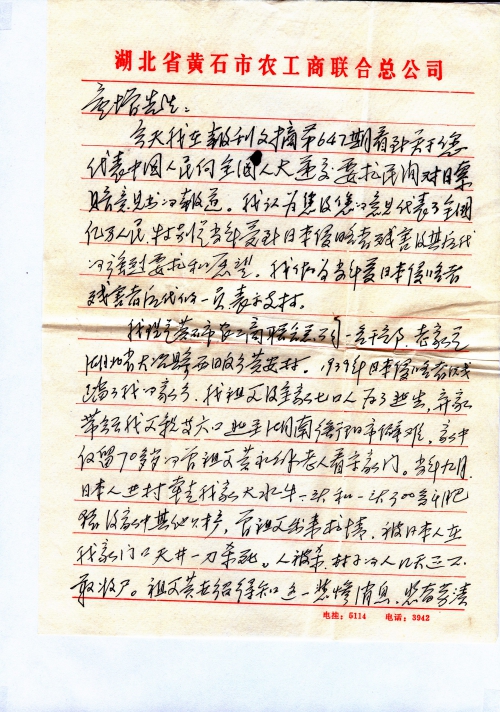 湖北省黄石市农工商联合总公司
童增先生：
今天我在报刊文摘第647期看到关于您
代表中国人民向全国人大递交要求民间对日索
赔意见书的报道。我认为您及您的意见代表了全国
亿万人民，特别是当年受到日本侵略者残害及其后代
的强烈要求和愿望。我们为当年受日本侵略者
残害者后代的一员表示支持。
我现是黄石市农工商联合总公司一名干部，老家是
湖北省大冶县西畈乡黄安村。1939年日本侵略者践
踏了我的家乡，我祖父及全家七口人为了逃生，弃家
带领我父亲等六口逃至湖南衡阳市避难，家中
仅留70岁的曾祖父黄礼 老人看守家门。当年九月
日本人进村牵走我家大水牛一头和一头300多斤肥
猪及家中其他财产，曾祖父出来求情，被日本人在
我家门口天井一刀杀死。人被杀，村子的人几天三不
敢收尸。祖父黄 绍得知这一悲惨消息，悲 
电挂：5114 电话：3942